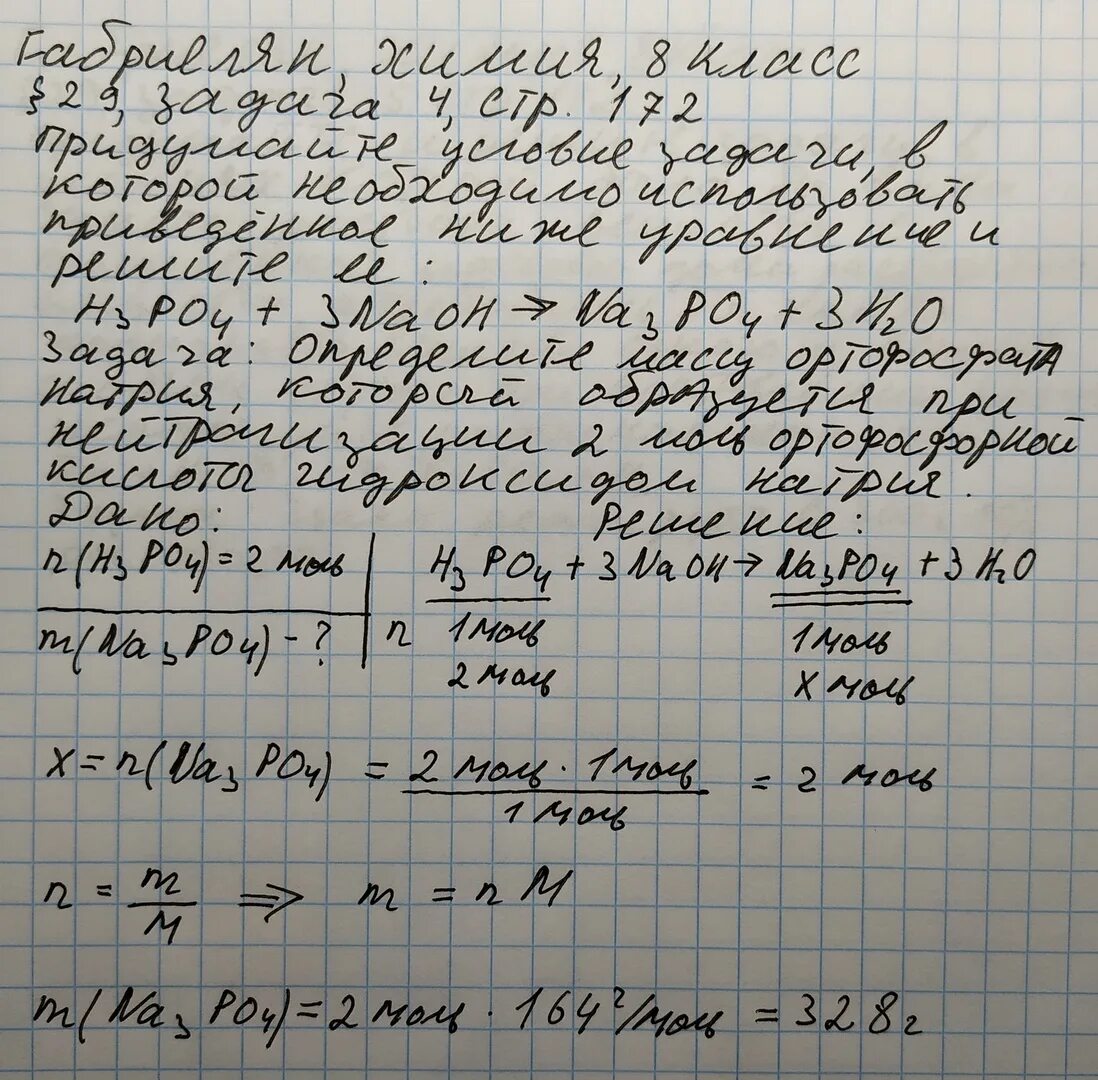 Габриелян, химия, 8 класс
§ 29, задача 4, стр. 172
Придумайте условие задачи, в
которой необходимо использовать
приведённое ниже уравнение и
решите ее:
H₃PO₄ + 3NaOH → Na₃PO₄ + 3H₂O
Задача: Определите массу ортофосфата
натрия, который образуется при
нейтрализации 2 моль ортофосфорной
кислоты гидроксидом натрия.
Дано: Решение:
n(H₃PO₄) = 2 моль H₃PO₄ + 3NaOH → Na₃PO₄ + 3H₂O
m(Na₃PO₄) - ? n 1 моль 1 моль
2 моль x моль
x = n(Na₃PO₄) = 2 моль · 1 моль / 1 моль = 2 моль
n = m/M ⇒ m = nM
m(Na₃PO₄) = 2 моль · 164 г/моль = 328 г